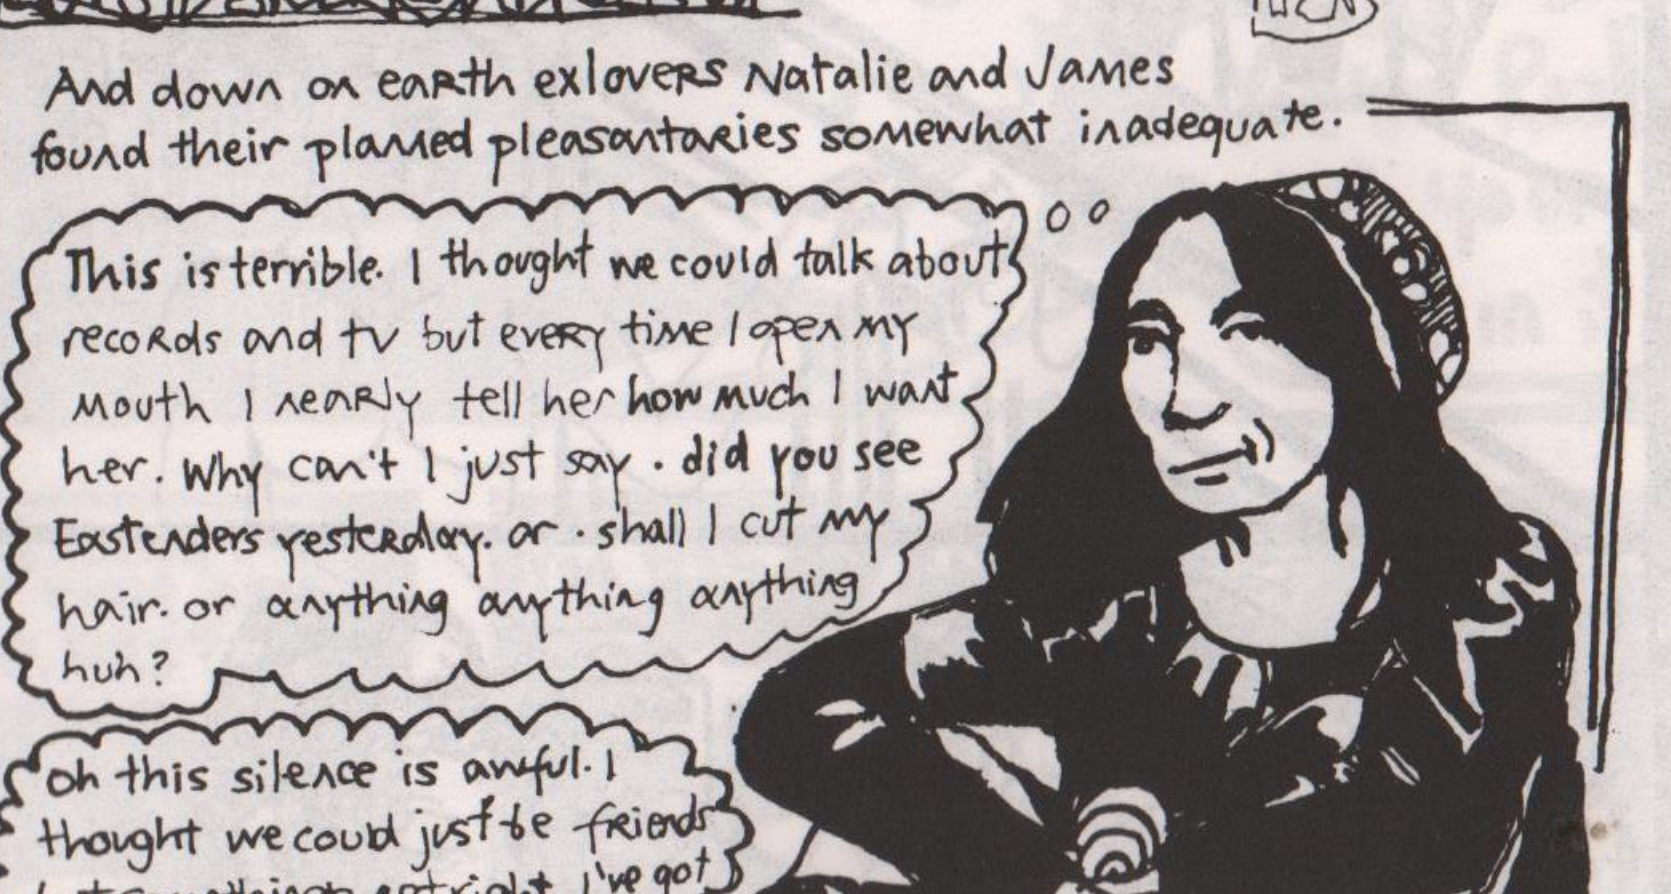 And down on earth exlovers Natalie and James
found their planned pleasantaries somewhat inadequate.
This is terrible. I thought we could talk about
records and tv but every time I open my
mouth I nearly tell her how much I want
her. Why can't I just say. did you see
Eastenders yesterday. or. shall I cut my
hair. or anything anything anything
huh?
oh this silence is awful. I
thought we could just be friends
I've got